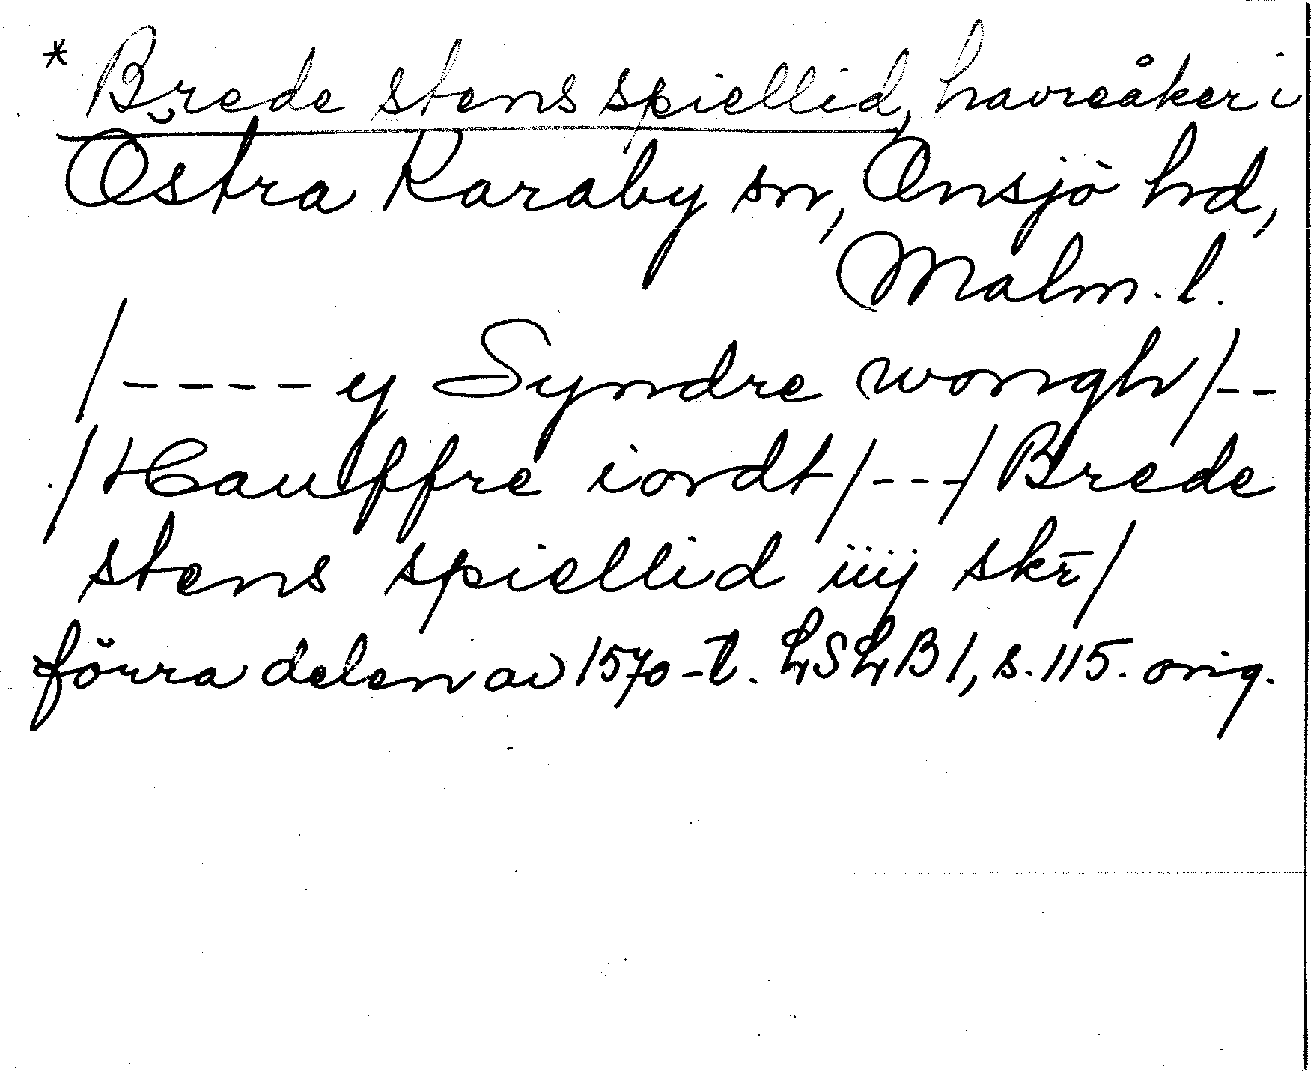 * Brede stens spiellid, havreåker i
Östra Karaby sn, Onsjö hd,
Malm. l.
/---- y Syndre wongh/--
/Hauffre iordt/---/Brede
stens spiellid iiij skr̄/
förra delen av 1570-t. LSLB 1, s. 115. orig.